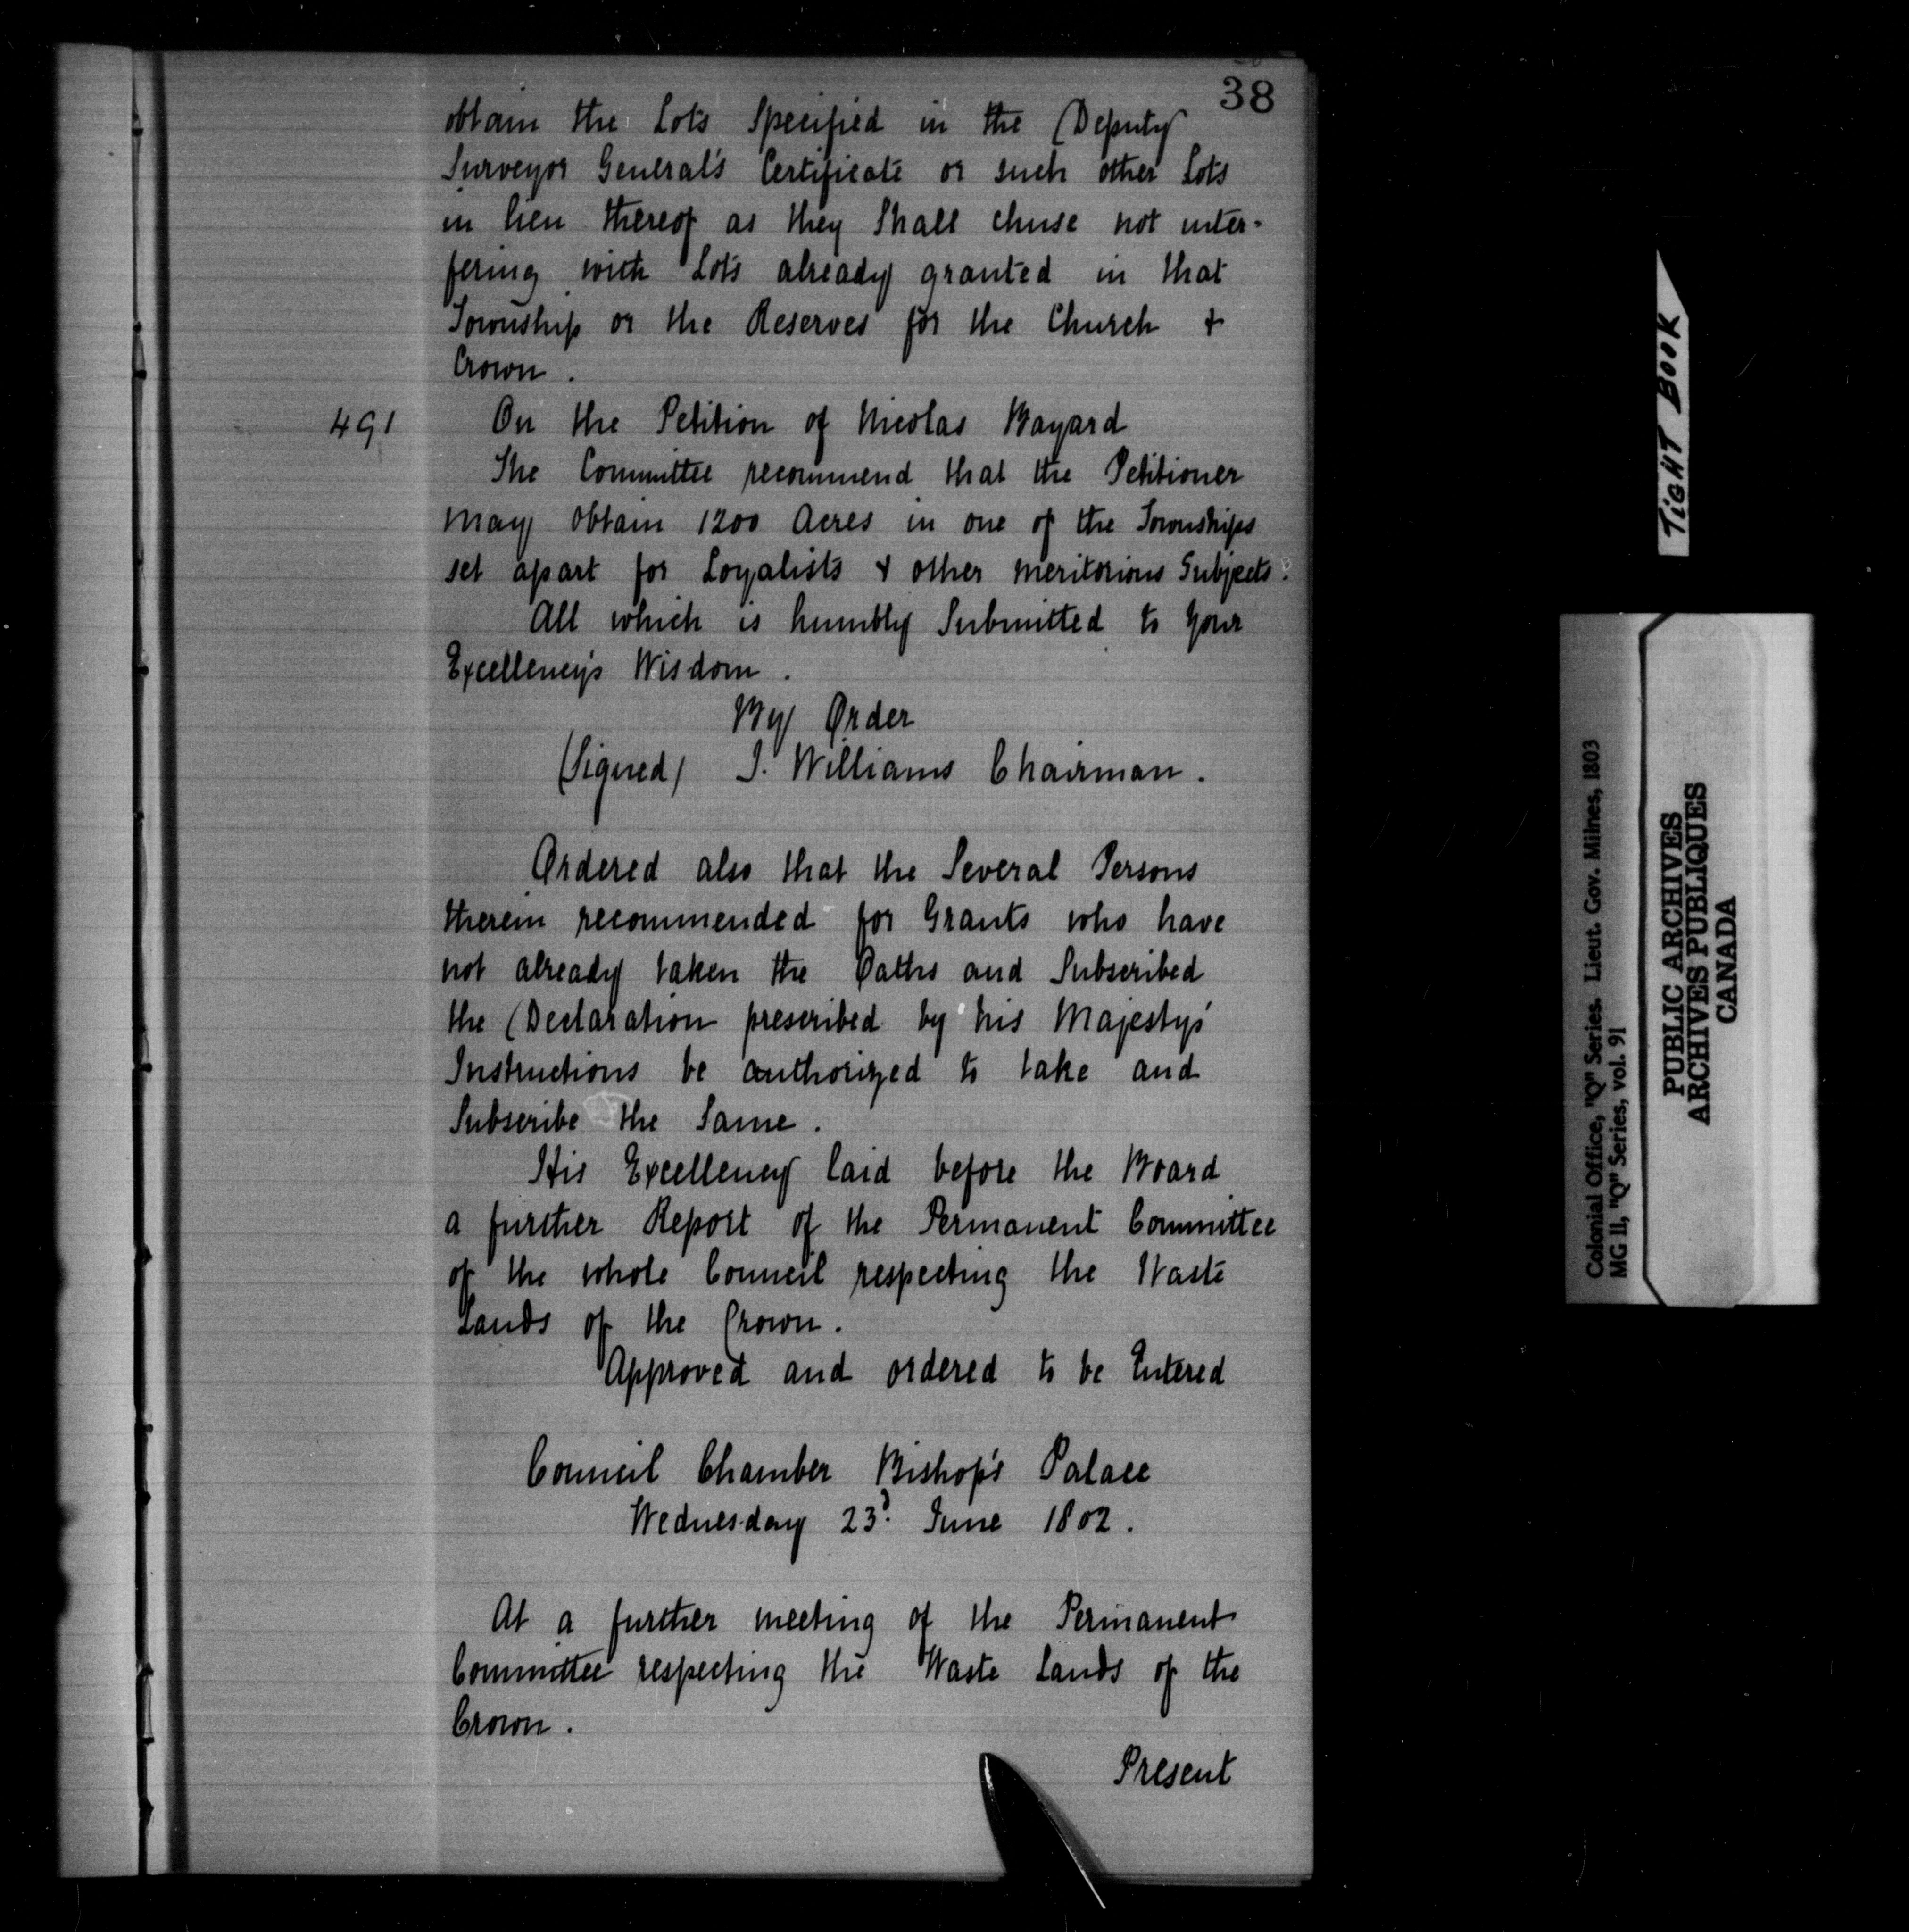 38
obtain the Lots Specified in the Deputy
Surveyor General's Certificate or such other Lots
in lieu thereof as they Shall chuse not inter-
fering with Lots already granted in that
Township or the Reserves for the Church &
Crown.
491
On the Petition of Nicolas Bayard
The Committee recommend that the Petitioner
may obtain 1200 Acres in one of the Townships
set apart for Loyalists & other meritorious Subjects.
All which is humbly Submitted to Your
Excellency's Wisdom.
By Order
(Signed) J. Williams Chairman.
Ordered also that the Several Persons
therein recommended for Grants who have
not already taken the Oaths and Subscribed
the Declaration prescribed by his Majestys'
Instructions be authorized to take and
Subscribe the Same.
His Excellency laid before the Board
a further Report of the Permanent Committee
of the whole Council respecting the Waste
Lands of the Crown.
Approved and ordered to be Entered
Council Chamber Bishop's Palace
Wednesday 23d June 1802.
At a further meeting of the Permanent
Committee respecting the Waste Lands of the
Crown.
Present
TIGHT BOOK
Colonial Office, "Q" Series. Lieut. Gov. Milnes, 1803
MG 11, "Q" Series, vol. 91
PUBLIC ARCHIVES
ARCHIVES PUBLIQUES
CANADA